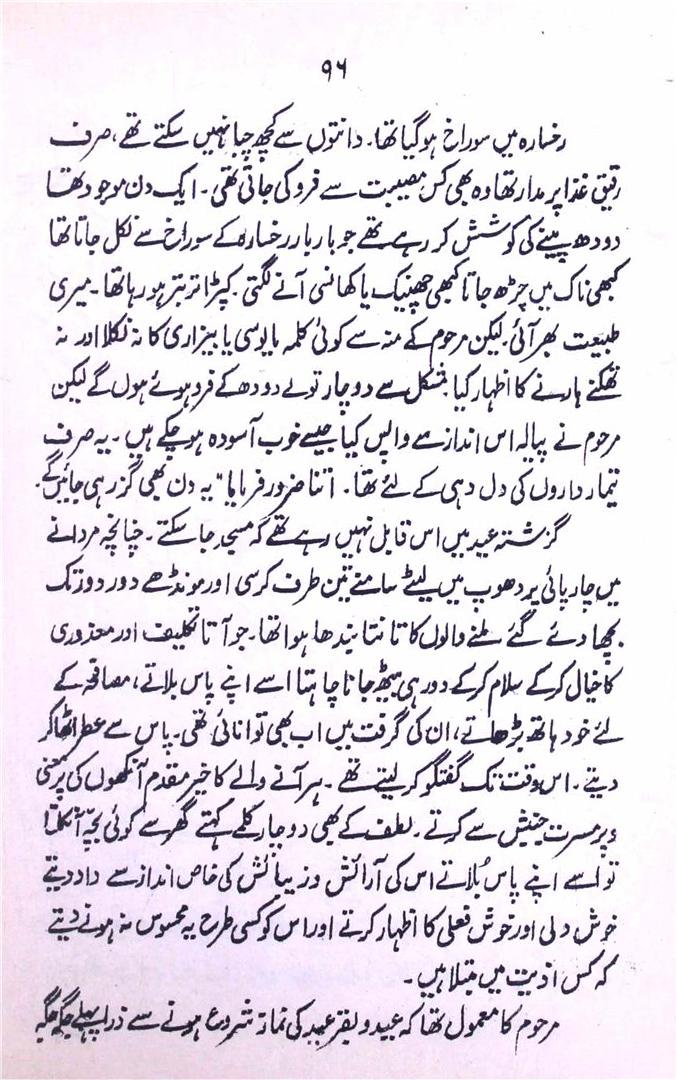 ۹۶
رخسارہ میں سوراخ ہو گیا تھا۔ دانتوں سے کچھ چبا نہیں سکتے تھے، صرف
رقیق غذا پر مدار تھا وہ بھی کس مصیبت سے فرو کی جاتی تھی۔ ایک دن موجود تھا
دودھ پینے کی کوشش کر رہے تھے جو بار بار رخسارہ کے سوراخ سے نکل جاتا تھا
کبھی ناک میں چڑھ جاتا کبھی چھینک یا کھانسی آنے لگتی۔ کپڑا تر بتر ہو رہا تھا۔ میری
طبیعت بھر آئی لیکن مرحوم کے منہ سے کوئی کلمہ مایوسی یا بیزاری کا نہ نکلا اور نہ
تھکنے ہارنے کا اظہار کیا بمشکل سے دو چار تولے دودھ کے فرو ہوئے ہوں گے لیکن
مرحوم نے پیالہ اس انداز سے واپس کیا جیسے خوب آسودہ ہو چکے ہیں۔ یہ صرف
تیمارداروں کی دل دہی کے لئے تھا۔ اتنا ضرور فرمایا "یہ دن بھی گزر ہی جائیں گے۔
گزشتہ عید میں اس قابل نہیں رہے تھے کہ مسجد جا سکتے۔ چنانچہ مردانے
میں چارپائی پر دھوپ میں لیٹے سامنے تین طرف کرسی اور مونڈھے دور دور تک
بچھا دئے گئے ملنے والوں کا تانتا بندھا ہوا تھا۔ جو آتا تکلیف اور معذوری
کا خیال کر کے سلام کر کے دور ہی بیٹھ جانا چاہتا اسے اپنے پاس بلاتے، مصافحہ کے
لئے خود ہاتھ بڑھاتے، ان کی گرفت میں اب بھی توانائی تھی۔ پاس سے عطر اٹھا کر
دیتے۔ اس وقت تک گفتگو کر لیتے تھے۔ ہر آنے والے کا خیر مقدم آنکھوں کی پرمعنی
و پرمسرت جنبش سے کرتے۔ لطف کے بھی دو چار کلمے کہتے گھر سے کوئی بچہ آ نکلتا
تو اسے اپنے پاس بُلاتے اس کی آرائش و زیبائش کی خاص انداز سے داد دیتے
خوش دلی اور خوش فعلی کا اظہار کرتے اور اس کو کسی طرح یہ محسوس نہ ہونے دیتے
کہ کس اذیت میں مبتلا ہیں۔
مرحوم کا معمول تھا کہ عید و بقر عید کی نماز شروع ہونے سے ذرا پہلے جگہ جگہ